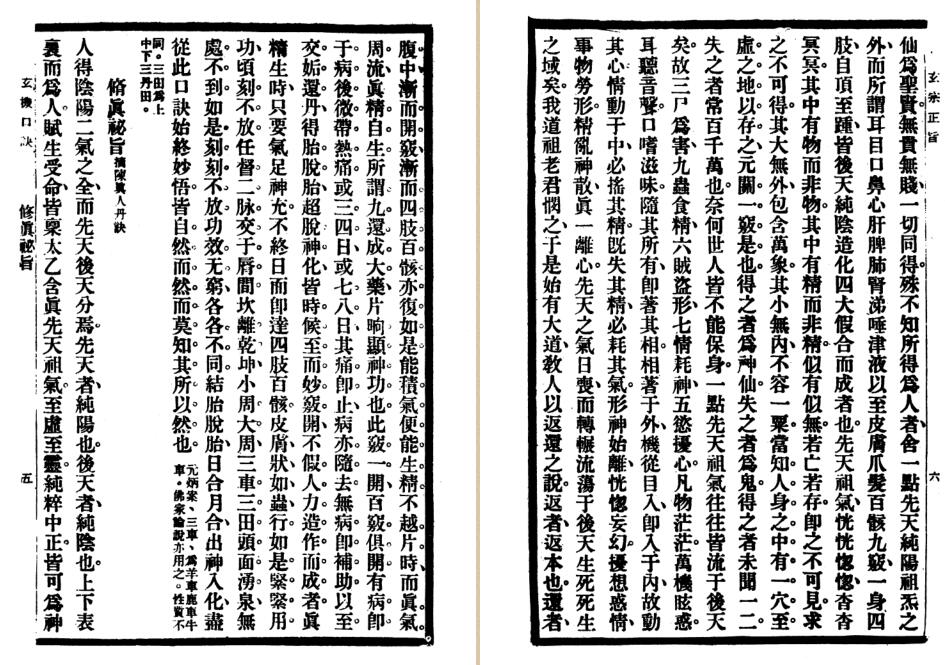 腹中漸而開竅漸而四肢百骸亦復如是能積氣便能生精不越片時而眞氣
周流眞精自生所謂九還成大藥片晌顯神功也此竅一開百竅俱開有病卽
于病後微帶熱痛或三四日或七八日其痛卽止病亦隨去無病卽補助以至
交姤還丹得胎脫胎超脫神化皆時候至而妙竅開不假人力造作而成者眞
精生時只要氣足神充不終日而卽達四肢百骸皮膚狀如蟲行如是緊緊用
功頃刻不放任督二脉交于脣間坎離乾坤小周大周三車三田頭面湧泉無
處不到如是刻刻不放功效无窮各各不同結胎脫胎日合月合出神入化盡
從此口訣始終妙悟皆自然而然而莫知其所以然也
元炳案、三車、爲羊車鹿車牛
車。佛家論說亦用之。性質不
同。三田爲上
中下三丹田。
脩眞祕旨 摘陳眞人丹訣
人得陰陽二氣之全而先天後天分焉。先天者純陽也。後天者純陰也。上下表
裏而爲人賦生受命皆稟太乙含眞先天祖氣。至虛至靈純粹中正。皆可爲神
玄機口訣 修眞祕旨 五
玄宗正旨 六
仙爲聖賢無貴無賤一切同得。殊不知所得爲人者舍一點先天純陽祖炁之
外而所謂耳目口鼻心肝脾肺腎涕唾津液以至皮膚爪髮百骸九竅一身四
肢自頂至踵皆後天純陰造化四大假合而成者也。先天祖氣恍恍惚惚杳杳
冥冥其中有物而非物其中有精而非精似有似無若亡若存卽之不可見求
之不可得其大無外包含萬象其小無內不容一粟當知人身之中有一穴至
虛之地以存之元關一竅是也得之者爲神仙失之者爲鬼得之者未聞一二
失之者常百千萬也奈何世人皆不能保身一點先天祖氣往往皆流于後天
矣故三尸爲害九蟲食精六賊盜形七情耗神五慾擾心凡物茫茫萬機眩惑
耳聽音聲口嗜滋味隨其所有卽著其相相著于外機從目入卽入于內故動
其心情動于中必搖其精旣失其精必耗其氣形神始離恍惚妄幻擾想惑情
事物勞形精亂神散眞一離心先天之氣日喪而轉輾流蕩于後天生死死生
之域矣我道祖老君憫之于是始有大道敎人以返還之說返者返本也還者